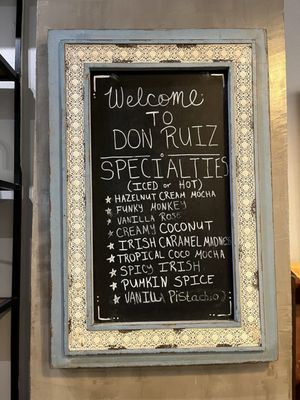 Welcome
TO
DON RUIZ
SPECIALTIES
(ICED or HOT)
★ HAZELNUT CREAM MOCHA
★ FUNKY MONKEY
★ VANILLA ROSE
★ CREAMY COCONUT
★ IRISH CARAMEL MADNESS
★ TROPICAL COCO MOCHA
★ SPICY IRISH
★ PUMKIN SPICE
★ VANILLA PiStachio